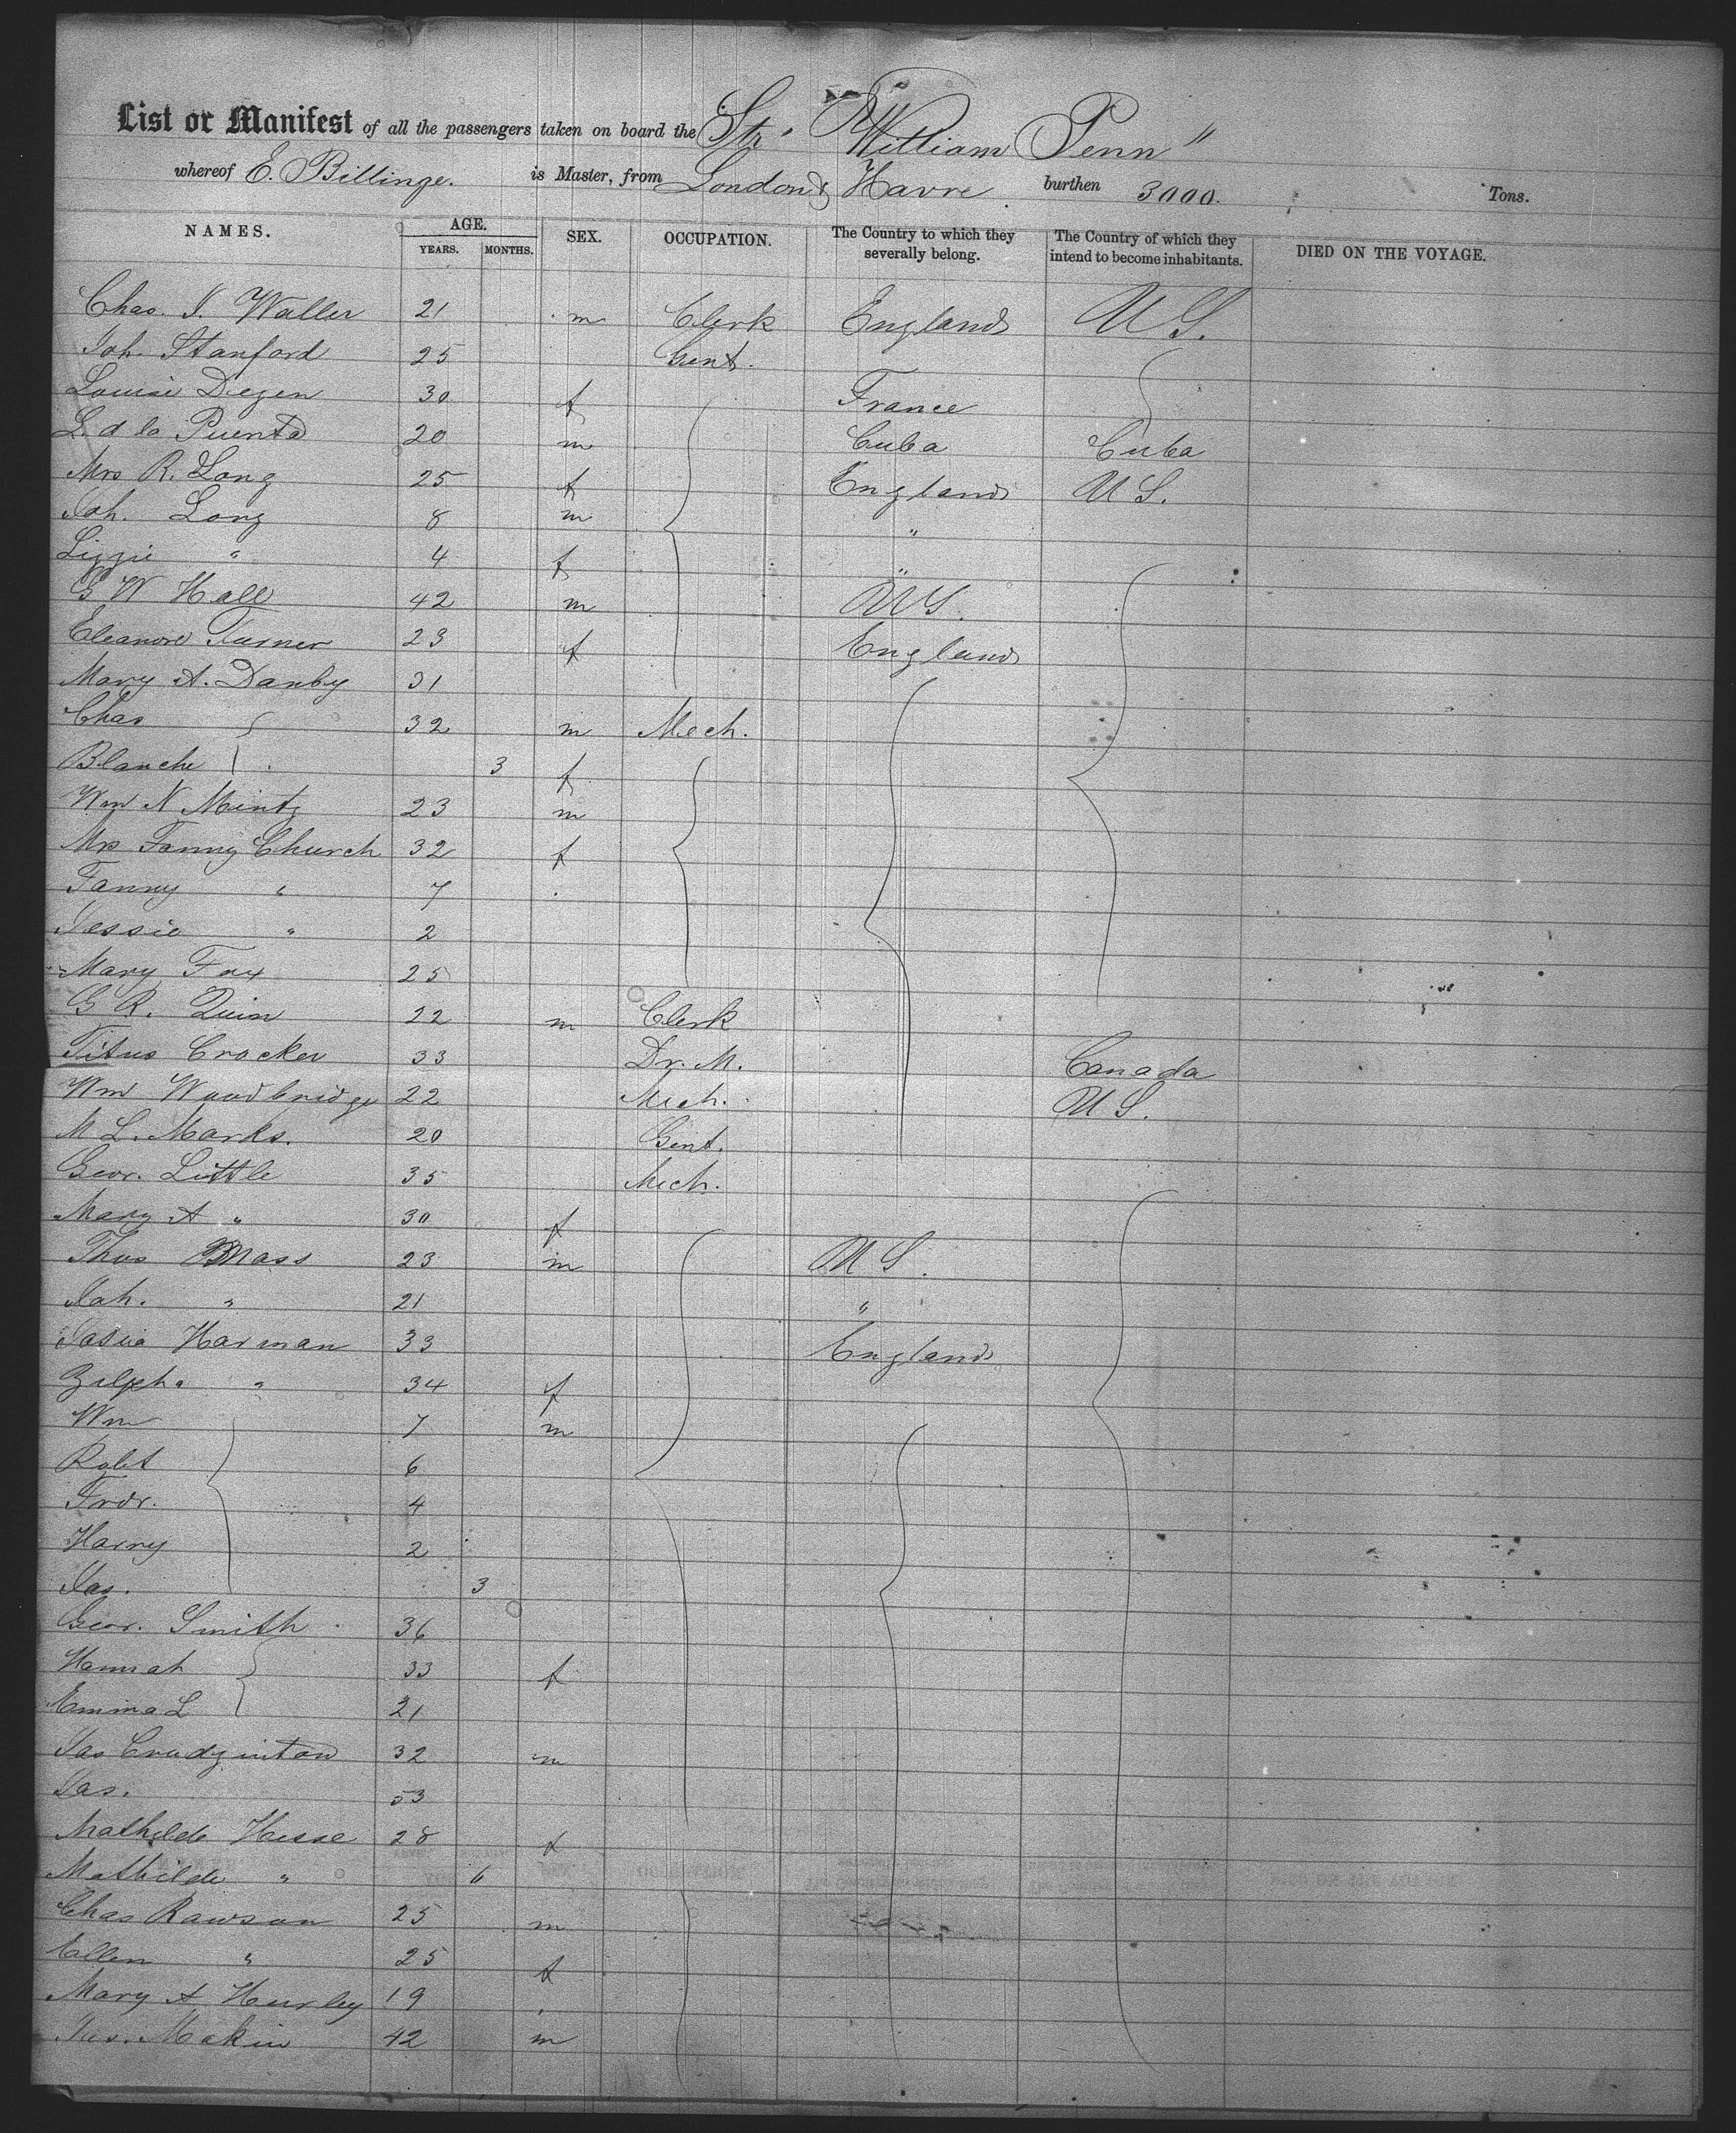 List or Manifest of all the passengers taken on board the Str. "William Penn"
whereof E. Billinge. is Master, from London & Havre burthen 3000. Tons.
NAMES. AGE. YEARS. MONTHS. SEX. OCCUPATION. The Country to which they severally belong. The Country of which they intend to become inhabitants. DIED ON THE VOYAGE.
Chas. J. Waller 21 m Clerk England U S.
Joh. Stanford 25 Gent.
Louise Degen 30 f France
L. d la Puenta 20 m Cuba Cuba
Mrs R. Long 25 f England U S.
Joh. Long 8 m "
Lizzie " 4 f "
G W Hall 42 m U S.
Eleanore Turner 23 f England
Mary A. Danby 31
Chas 32 m Mech.
Blanche 3 f
Wm N Mintz 23 m
Mrs Fanny Church 32 f
Fanny " 7
Jessie " 2
Mary Fox 25
G R. Quin 22 m Clerk
Titus Crocker 33 Dr. M. Canada
Wm Woodbridge 22 Mech. U S.
M L. Marks. 20 Gent.
Geor. Little 35 Mech.
Mary A " 30 f
Thos Mass 23 m U S.
Joh. " 21 "
Harman 33 England
Zilpha " 34 f
Wm 7 m
Robt 6
Fredr. 4
Harry 2
Jas. 3
Geor. Smith 36
Hannah 33 f
Emma L 21
Jas Crudginton 32 m
Jas. 53
Mathilde Hesse 28 f
Mathilde " 6
Chas Rawson 25 m
Ellen " 25 f
Mary A Hurley 19
Makin 42 m